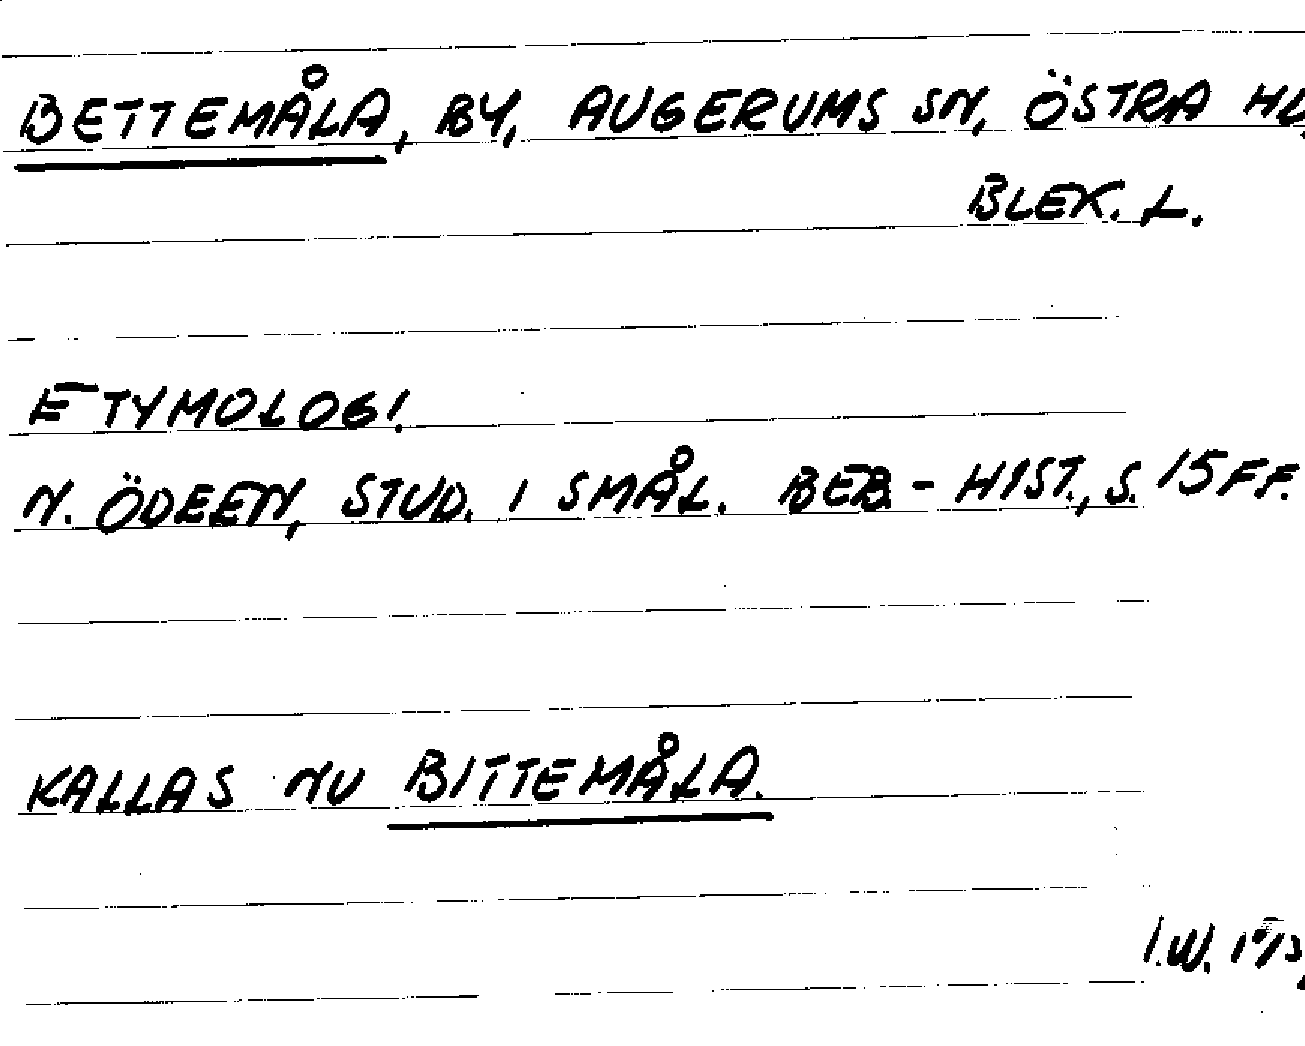 BETTEMÅLA, BY, AUGERUMS SN, ÖSTRA HD,
BLEK. L.
ETYMOLOGI.
N. ÖDEEN, STUD. I SMÅL. BEB.-HIST., S. 15 FF.
KALLAS NU BITTEMÅLA.
I.W.